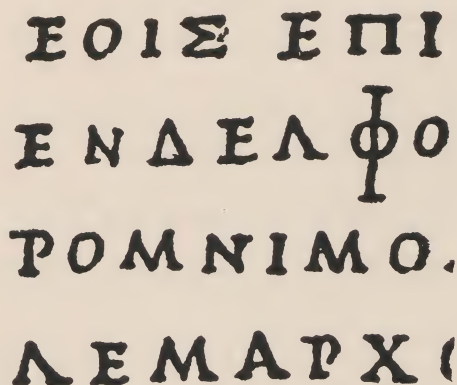 ΕΟΙΣ ΕΠΙ
ΕΝΔΕΛΦΟ
ΡΟΜΝΙΜΟ
ΛΕΜΑΡΧ